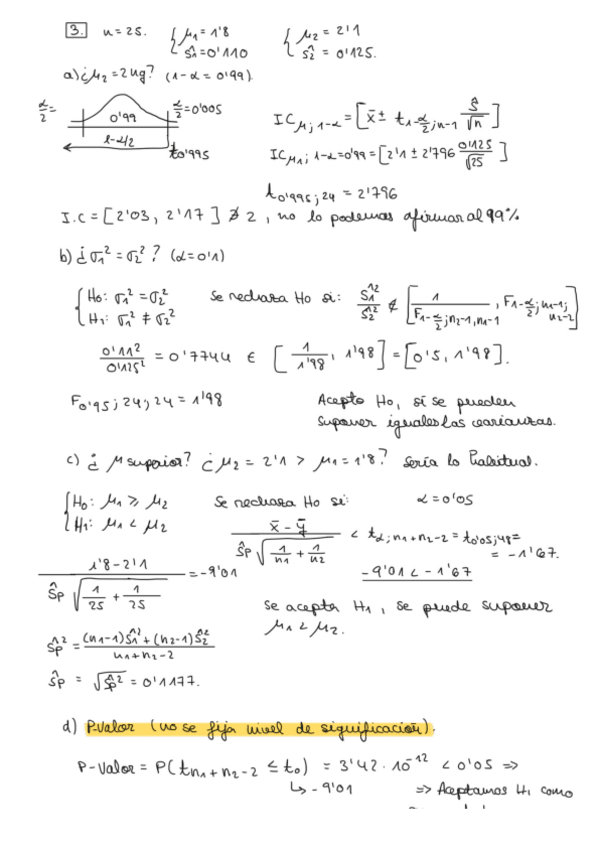 3. n = 25. { μ1 = 1'8 { μ2 = 2'1
ŝ1 = 0'110 ŝ2 = 0'125.
a) ¿μ2 = 2ug? (1-α = 0'99).
α/2 = 0'99 α/2 = 0'005
1-α/2
t0'995
IC μ; 1-α = [x̄ ± t 1-α/2; n-1 ŝ/√n]
IC μ1; 1-α=0'99 = [2'1 ± 2'796 0'125/√25]
t0'995; 24 = 2'796
I.C = [2'03, 2'17] ∌ 2, no lo podemos afirmar al 99%
b) ¿σ1² = σ2²? (α = 0'1)
{ H0: σ1² = σ2² Se rechaza H0 si: ŝ1²/ŝ2² ∉ [1/F1-α/2; n2-1, n1-1, F1-α/2; n1-1; n2-2]
H1: σ1² ≠ σ2²
0'11²/0'125² = 0'7744 ∈ [1/1'98, 1'98] = [0'5, 1'98].
F0'95; 24; 24 = 1'98 Acepto H0, sí se pueden
suponer iguales las varianzas.
c) ¿μ superior? ¿μ2 = 2'1 > μ1 = 1'8? Sería lo habitual.
{ H0: μ1 ≥ μ2 Se rechaza H0 si: α = 0'05
H1: μ1 < μ2
x̄ - ȳ / ŝp √(1/n1 + 1/n2) < tα; n1+n2-2 = t0'05; 48 =
= -1'67.
1'8 - 2'1 / ŝp √(1/25 + 1/25) = -9'01
-9'01 < -1'67
Se acepta H1, se puede suponer
μ1 < μ2.
ŝp² = (n1-1)ŝ1² + (n2-1)ŝ2² / n1+n2-2
ŝp = √ŝp² = 0'1177.
d) P-valor (no se fija nivel de significación).
P-valor = P(t n1+n2-2 ≤ t0) = 3'42 · 10⁻¹² < 0'05 =>
↳ -9'01 => Aceptamos H1 como